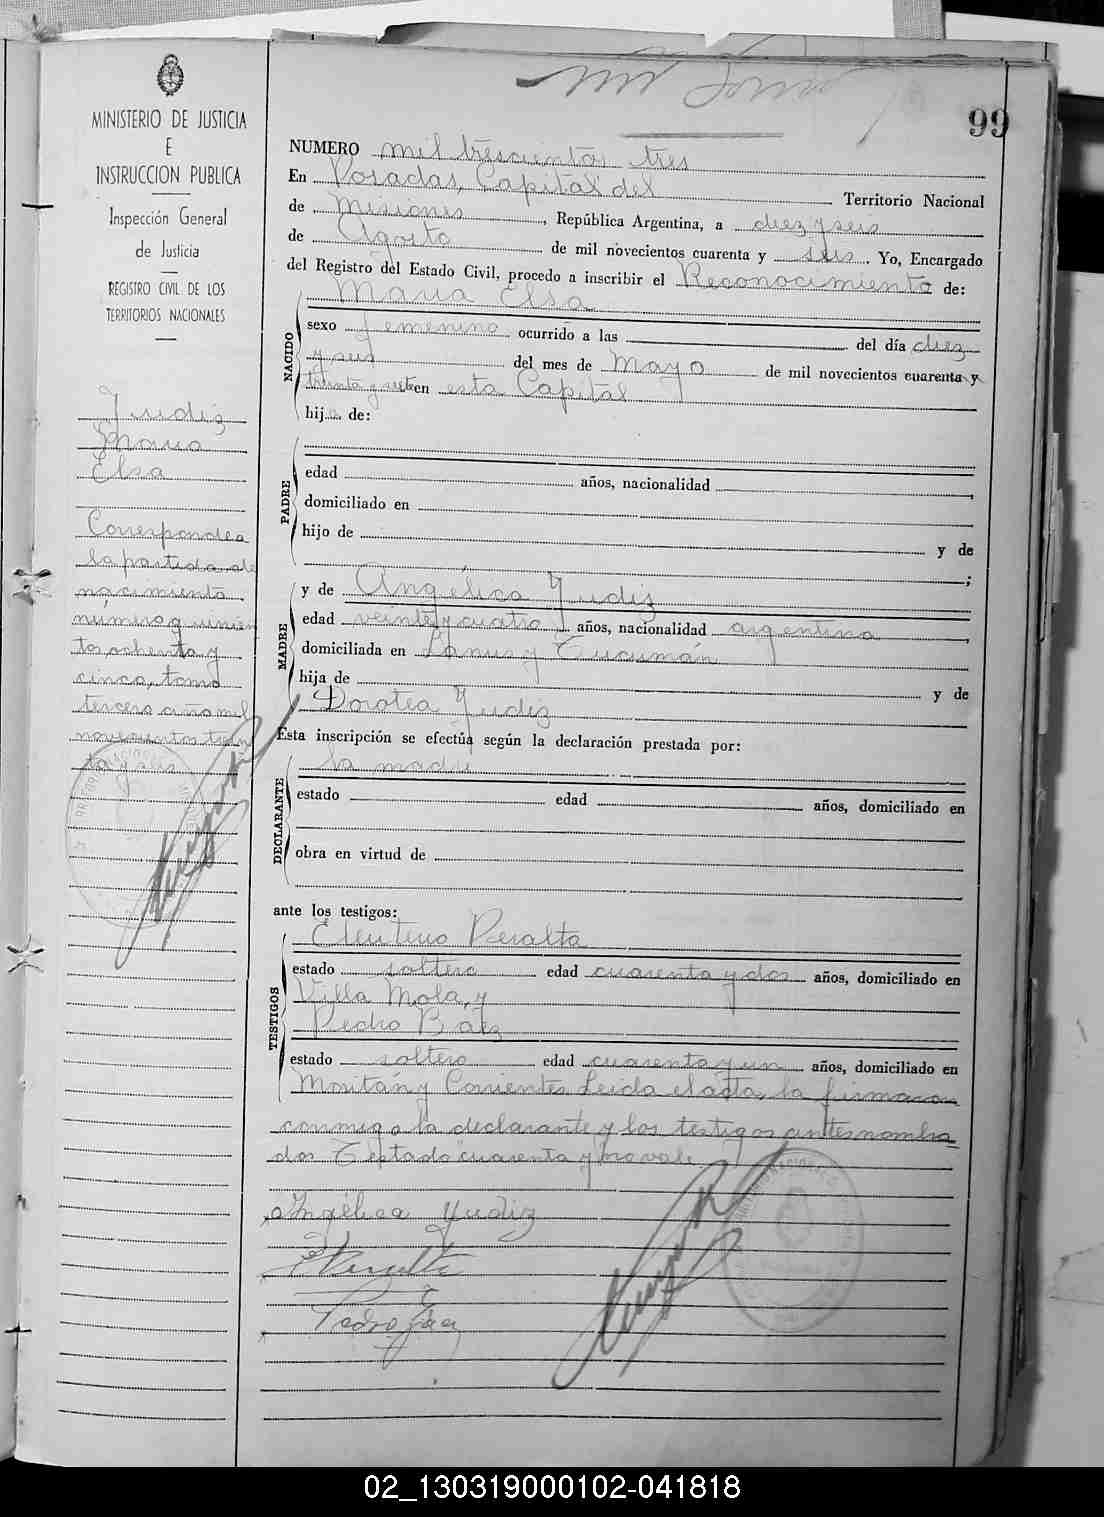 99
MINISTERIO DE JUSTICIA
E
INSTRUCCION PUBLICA
Inspección General
de Justicia
REGISTRO CIVIL DE LOS
TERRITORIOS NACIONALES
Yudiz
Maria
Elsa
Corresponde a
la partida de
nacimiento
número quinien
tos ochenta y
cinco, tomo
tercero año mil
novecientos trein
ta y seis
NUMERO mil trescientos tres
En Posadas, Capital del Territorio Nacional
de Misiones, República Argentina, a diez y seis
de Agosto de mil novecientos cuarenta y seis. Yo, Encargado
del Registro del Estado Civil, procedo a inscribir el Reconocimiento de:
Maria Elsa
NACIDO
sexo femenino ocurrido a las del día diez
y seis del mes de Mayo de mil novecientos cuarenta y
treinta y seis en esta Capital
hija de:
PADRE
edad años, nacionalidad
domiciliado en
hijo de y de
;
MADRE
y de Angélica Yudiz
edad veinte y cuatro años, nacionalidad argentina
domiciliada en Lanus y Tucumán
hija de y de
Dorotea Yudiz
Esta inscripción se efectúa según la declaración prestada por:
la madre
DECLARANTE
estado edad años, domiciliado en
obra en virtud de
ante los testigos:
TESTIGOS
Eleuterio Peralta
estado soltero edad cuarenta y dos años, domiciliado en
Villa Mola, y
Pedro Baez
estado soltero edad cuarenta y un años, domiciliado en
Moritán y Corrientes. Leida el acta, la firmaron
conmigo la declarante y los testigos antes nombra
dos. Testado cuarenta y no vale
Angélica Yudiz
E Peralta
Pedro Baez
02_130319000102-041818